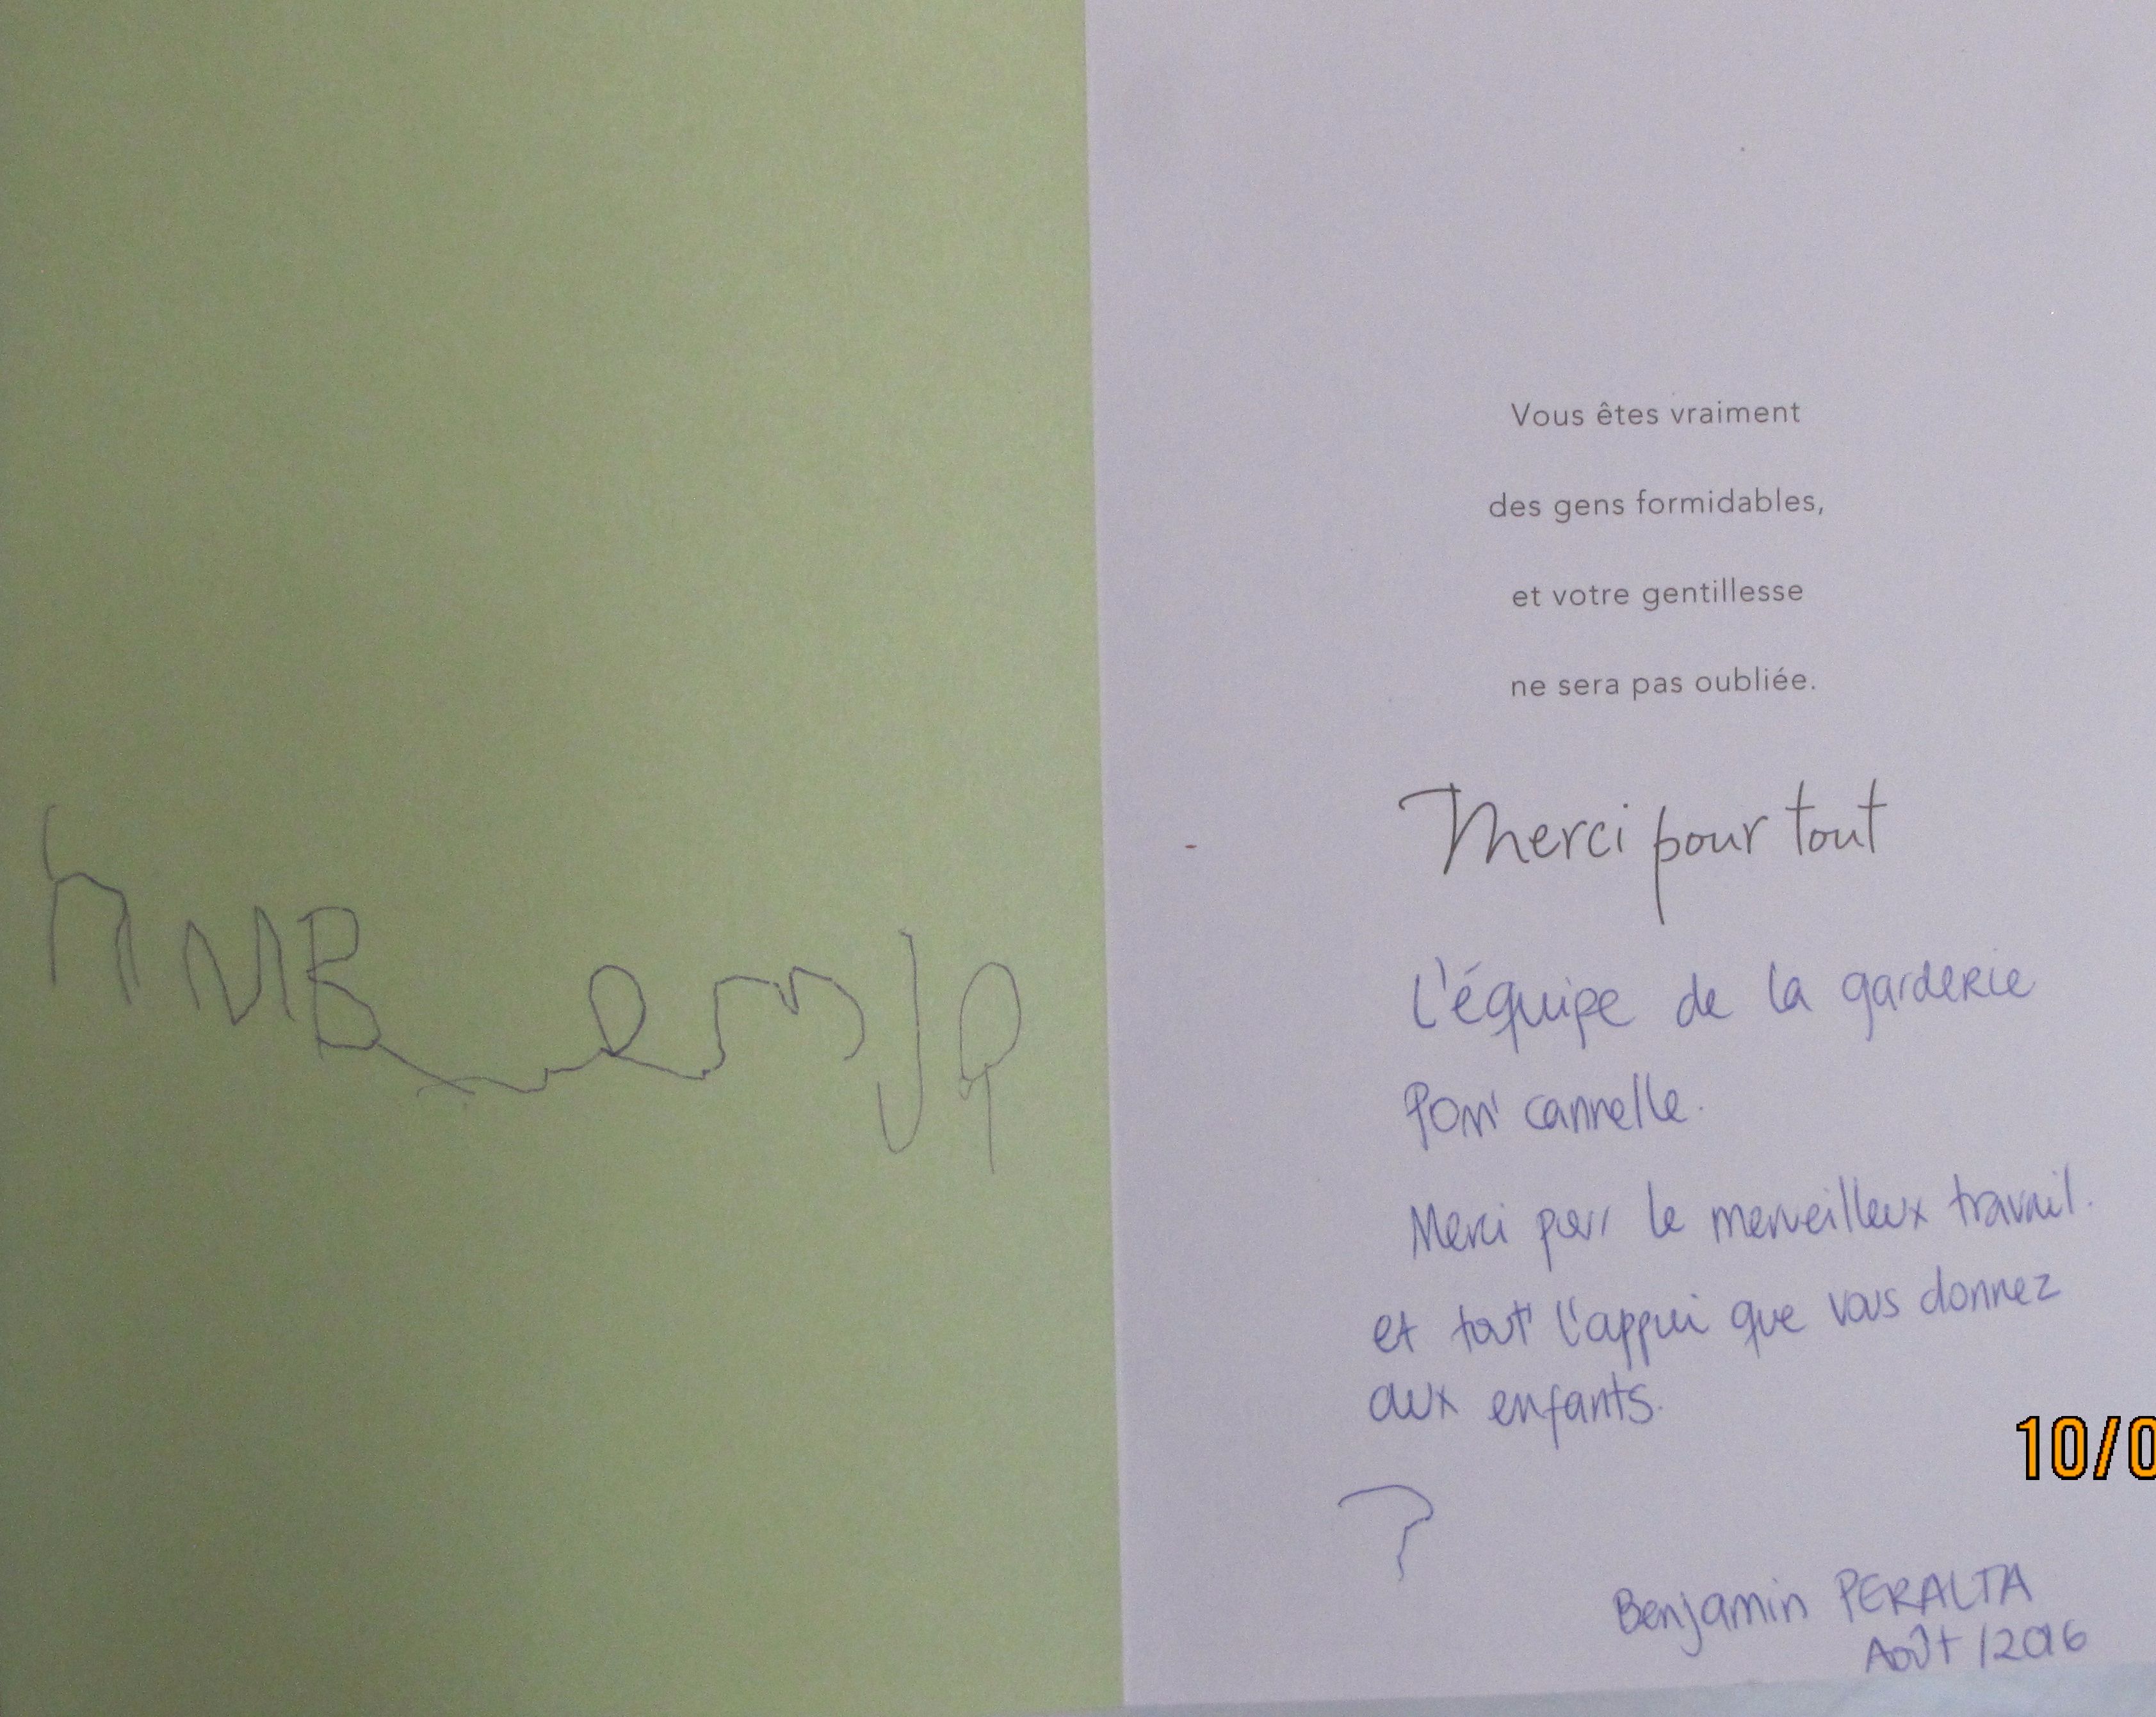 Vous êtes vraiment
des gens formidables,
et votre gentillesse
ne sera pas oubliée.
Merci pour tout
L'équipe de la garderie
Pom' cannelle.
Merci pour le merveilleux travail.
et tout l'appui que vous donnez
aux enfants.
10/0
Benjamin PERALTA
Août /2016